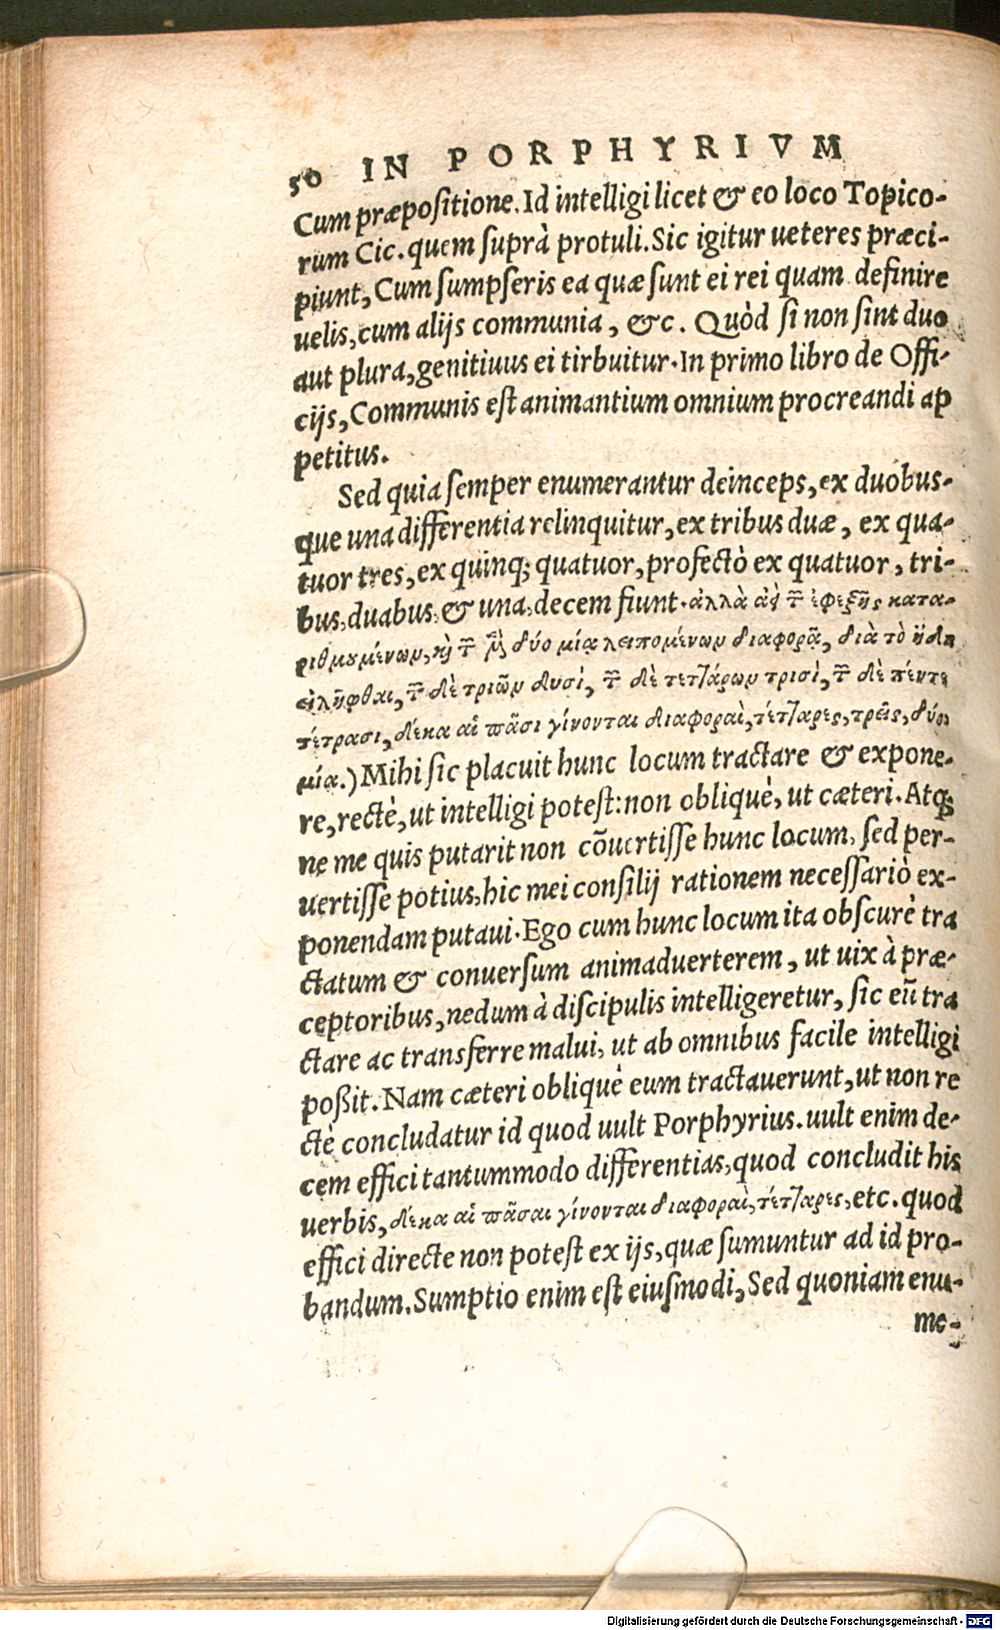 50 IN PORPHYRIVM
Cum præpositione. Id intelligi licet & eo loco Topico-
rum Cic. quem suprà protuli. Sic igitur ueteres præci-
piunt, Cum sumpseris ea quæ sunt ei rei quam definire
uelis, cum alijs communia, &c. Quòd si non sint duo
aut plura, genitiuus ei tirbuitur. In primo libro de Offi-
cijs, Communis est animantium omnium procreandi ap
petitus.
Sed quia semper enumerantur deinceps, ex duobus-
que una differentia relinquitur, ex tribus duæ, ex qua-
tuor tres, ex quinq; quatuor, profectò ex quatuor, tri-
bus, duabus, & una, decem fiunt. ἀλλὰ ἀεὶ τῶν ἐφεξῆς κατα-
ριθμουμένων, καὶ τῶν μὲν δύο μίᾳ λειπομένων διαφορᾷ, διὰ τὸ ἤδη
εἰλῆφθαι, τῶν δὲ τριῶν δυσὶ, τῶν δὲ τετλάρων τρισὶ, τῶν δὲ πέντε
τέτρασι, δέκα αἱ πᾶσι γίνονται διαφοραὶ, τέτλαρες, τρεῖς, δύο,
μία.) Mihi sic placuit hunc locum tractare & expone-
re, rectè, ut intelligi potest: non obliquè, ut cæteri. Atq;
ne me quis putarit non cōuertisse hunc locum, sed per-
uertisse potius, hic mei consilij rationem necessariò ex-
ponendam putaui. Ego cum hunc locum ita obscurè tra
ctatum & conuersum animaduerterem, ut uix à præ-
ceptoribus, nedum à discipulis intelligeretur, sic eū tra
ctare ac transferre malui, ut ab omnibus facile intelligi
poßit. Nam cæteri obliquè eum tractauerunt, ut non re
ctè concludatur id quod uult Porphyrius. uult enim de-
cem effici tantummodo differentias, quod concludit his
uerbis, δέκα αἱ πᾶσαι γίνονται διαφοραὶ, τέτλαρες, etc. quod
effici directe non potest ex ijs, quæ sumuntur ad id pro-
bandum. Sumptio enim est eiusmodi, Sed quoniam enu-
me-
Digitalisierung gefördert durch die Deutsche Forschungsgemeinschaft - DFG